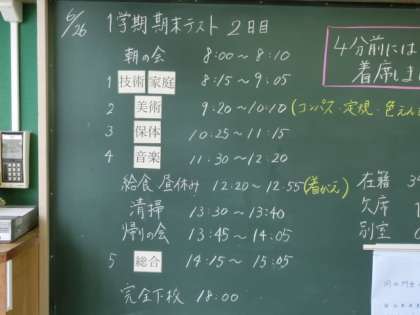 6/26 1学期期末テスト 2日目
朝の会 8:00～8:10
1 技術 家庭 8:15～9:05
2 美術 9:20～10:10 (コンパス・定規・色えん
3 保体 10:25～11:15
4 音楽 11:30～12:20
給食 昼休み 12:20～12:55 (着がえ)
清掃 13:30～13:40
帰りの会 13:45～14:05
5 総合 14:15～15:05
完全下校 18:00
4分前には
着席しま
在籍 3
欠席 1
別室